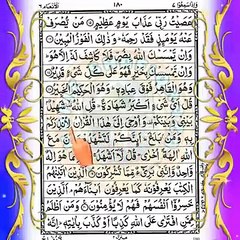 واذا سمعوا ٧ ١٨٠ الانعام ٦
عَصَيْتُ رَبِّىْ عَذَابَ يَوْمٍ عَظِيْمٍ مَنْ يُّصْرَفْ
عَنْهُ يَوْمَئِذٍ فَقَدْ رَحِمَهٗ وَذٰلِكَ الْفَوْزُ الْمُبِيْنُ
وَاِنْ يَّمْسَسْكَ اللّٰهُ بِضُرٍّ فَلَا كَاشِفَ لَهٗۤ اِلَّا هُوَ
وَاِنْ يَّمْسَسْكَ بِخَيْرٍ فَهُوَ عَلٰى كُلِّ شَىْءٍ قَدِيْرٌ
وَهُوَ الْقَاهِرُ فَوْقَ عِبَادِهٖ وَهُوَ الْحَكِيْمُ الْخَبِيْرُ
قُلْ اَىُّ شَىْءٍ اَكْبَرُ شَهَادَةً قُلِ اللّٰهُ شَهِيْدٌ
بَيْنِىْ وَبَيْنَكُمْ وَاُوْحِىَ اِلَىَّ هٰذَا الْقُرْاٰنُ لِاُنْذِرَكُمْ
بِهٖ وَمَنْۢ بَلَغَ اَئِنَّكُمْ لَتَشْهَدُوْنَ اَنَّ مَعَ
اللّٰهِ اٰلِهَةً اُخْرٰى قُلْ لَّاۤ اَشْهَدُ قُلْ اِنَّمَا هُوَ اِلٰهٌ
مِّمَّا تُشْرِكُوْنَ اَلَّذِيْنَ اٰتَيْنٰهُمُ
الْكِتٰبَ يَعْرِفُوْنَهٗ كَمَا يَعْرِفُوْنَ اَبْنَآءَهُمْ اَلَّذِيْنَ
خَسِرُوْۤا اَنْفُسَهُمْ فَهُمْ لَا يُؤْمِنُوْنَ وَمَنْ اَظْلَمُ
مِمَّنِ افْتَرٰى عَلَى اللّٰهِ كَذِبًا اَوْ كَذَّبَ بِاٰيٰتِهٖ اِنَّهٗ